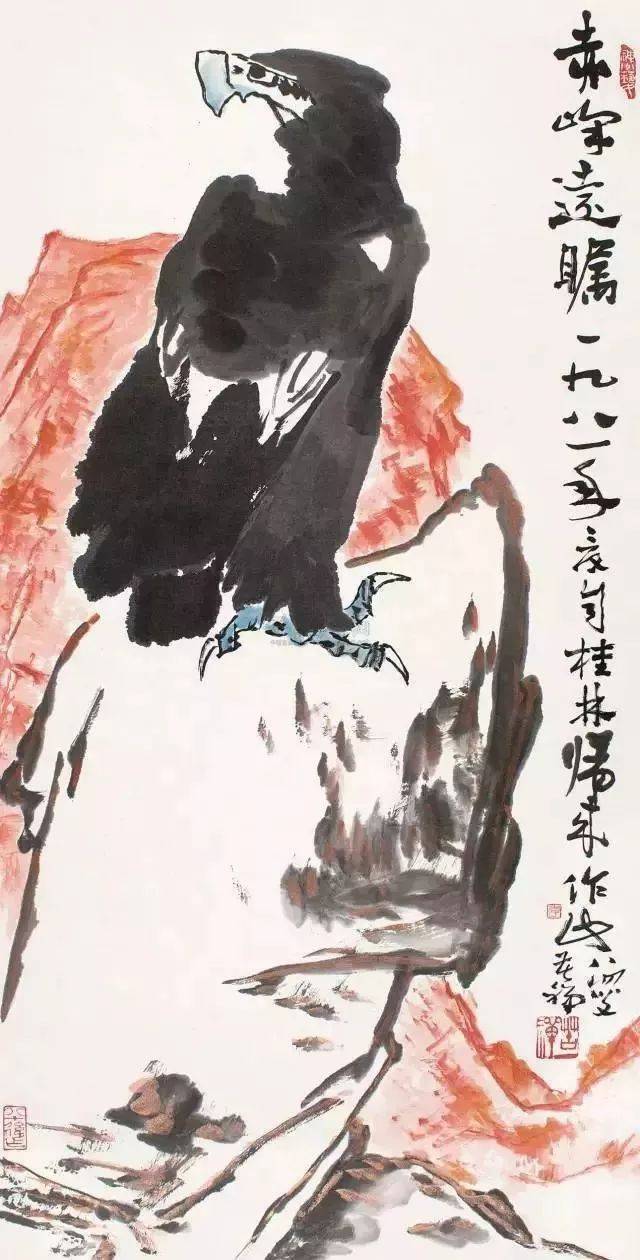 赤峰遠瞩一九八一年夏自桂林歸來作此八四叟
苦禪
苦禪